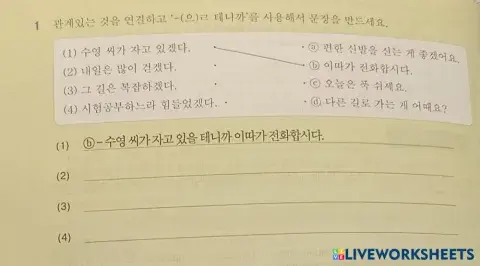 1 관계있는 것을 연결하고 '-(으)ㄹ 테니까'를 사용해서 문장을 만드세요.
(1) 수영 씨가 자고 있겠다. · · ⓐ 편한 신발을 신는 게 좋겠어요.
(2) 내일은 많이 걷겠다. · · ⓑ 이따가 전화합시다.
(3) 그 길은 복잡하겠다. · · ⓒ 오늘은 푹 쉬세요.
(4) 시험공부하느라 힘들었겠다. · · ⓓ 다른 길로 가는 게 어때요?
(1) ⓑ - 수영 씨가 자고 있을 테니까 이따가 전화합시다.
(2)
(3)
(4)
LIVEWORKSHEETS